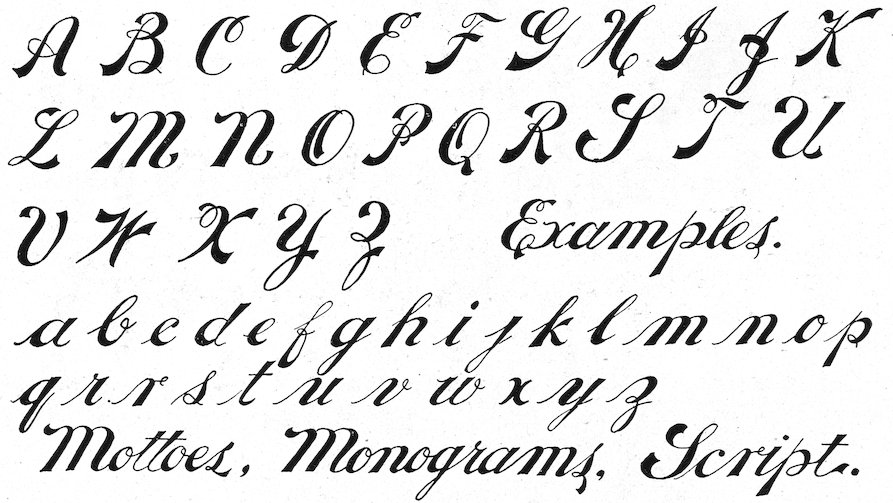 A B C D E F G H I J K
L M N O P Q R S T U
V W X Y Z Examples.
a b c d e f g h i j k l m n o p
q r r s t u v w x y z
Mottoes, Monograms, Script.